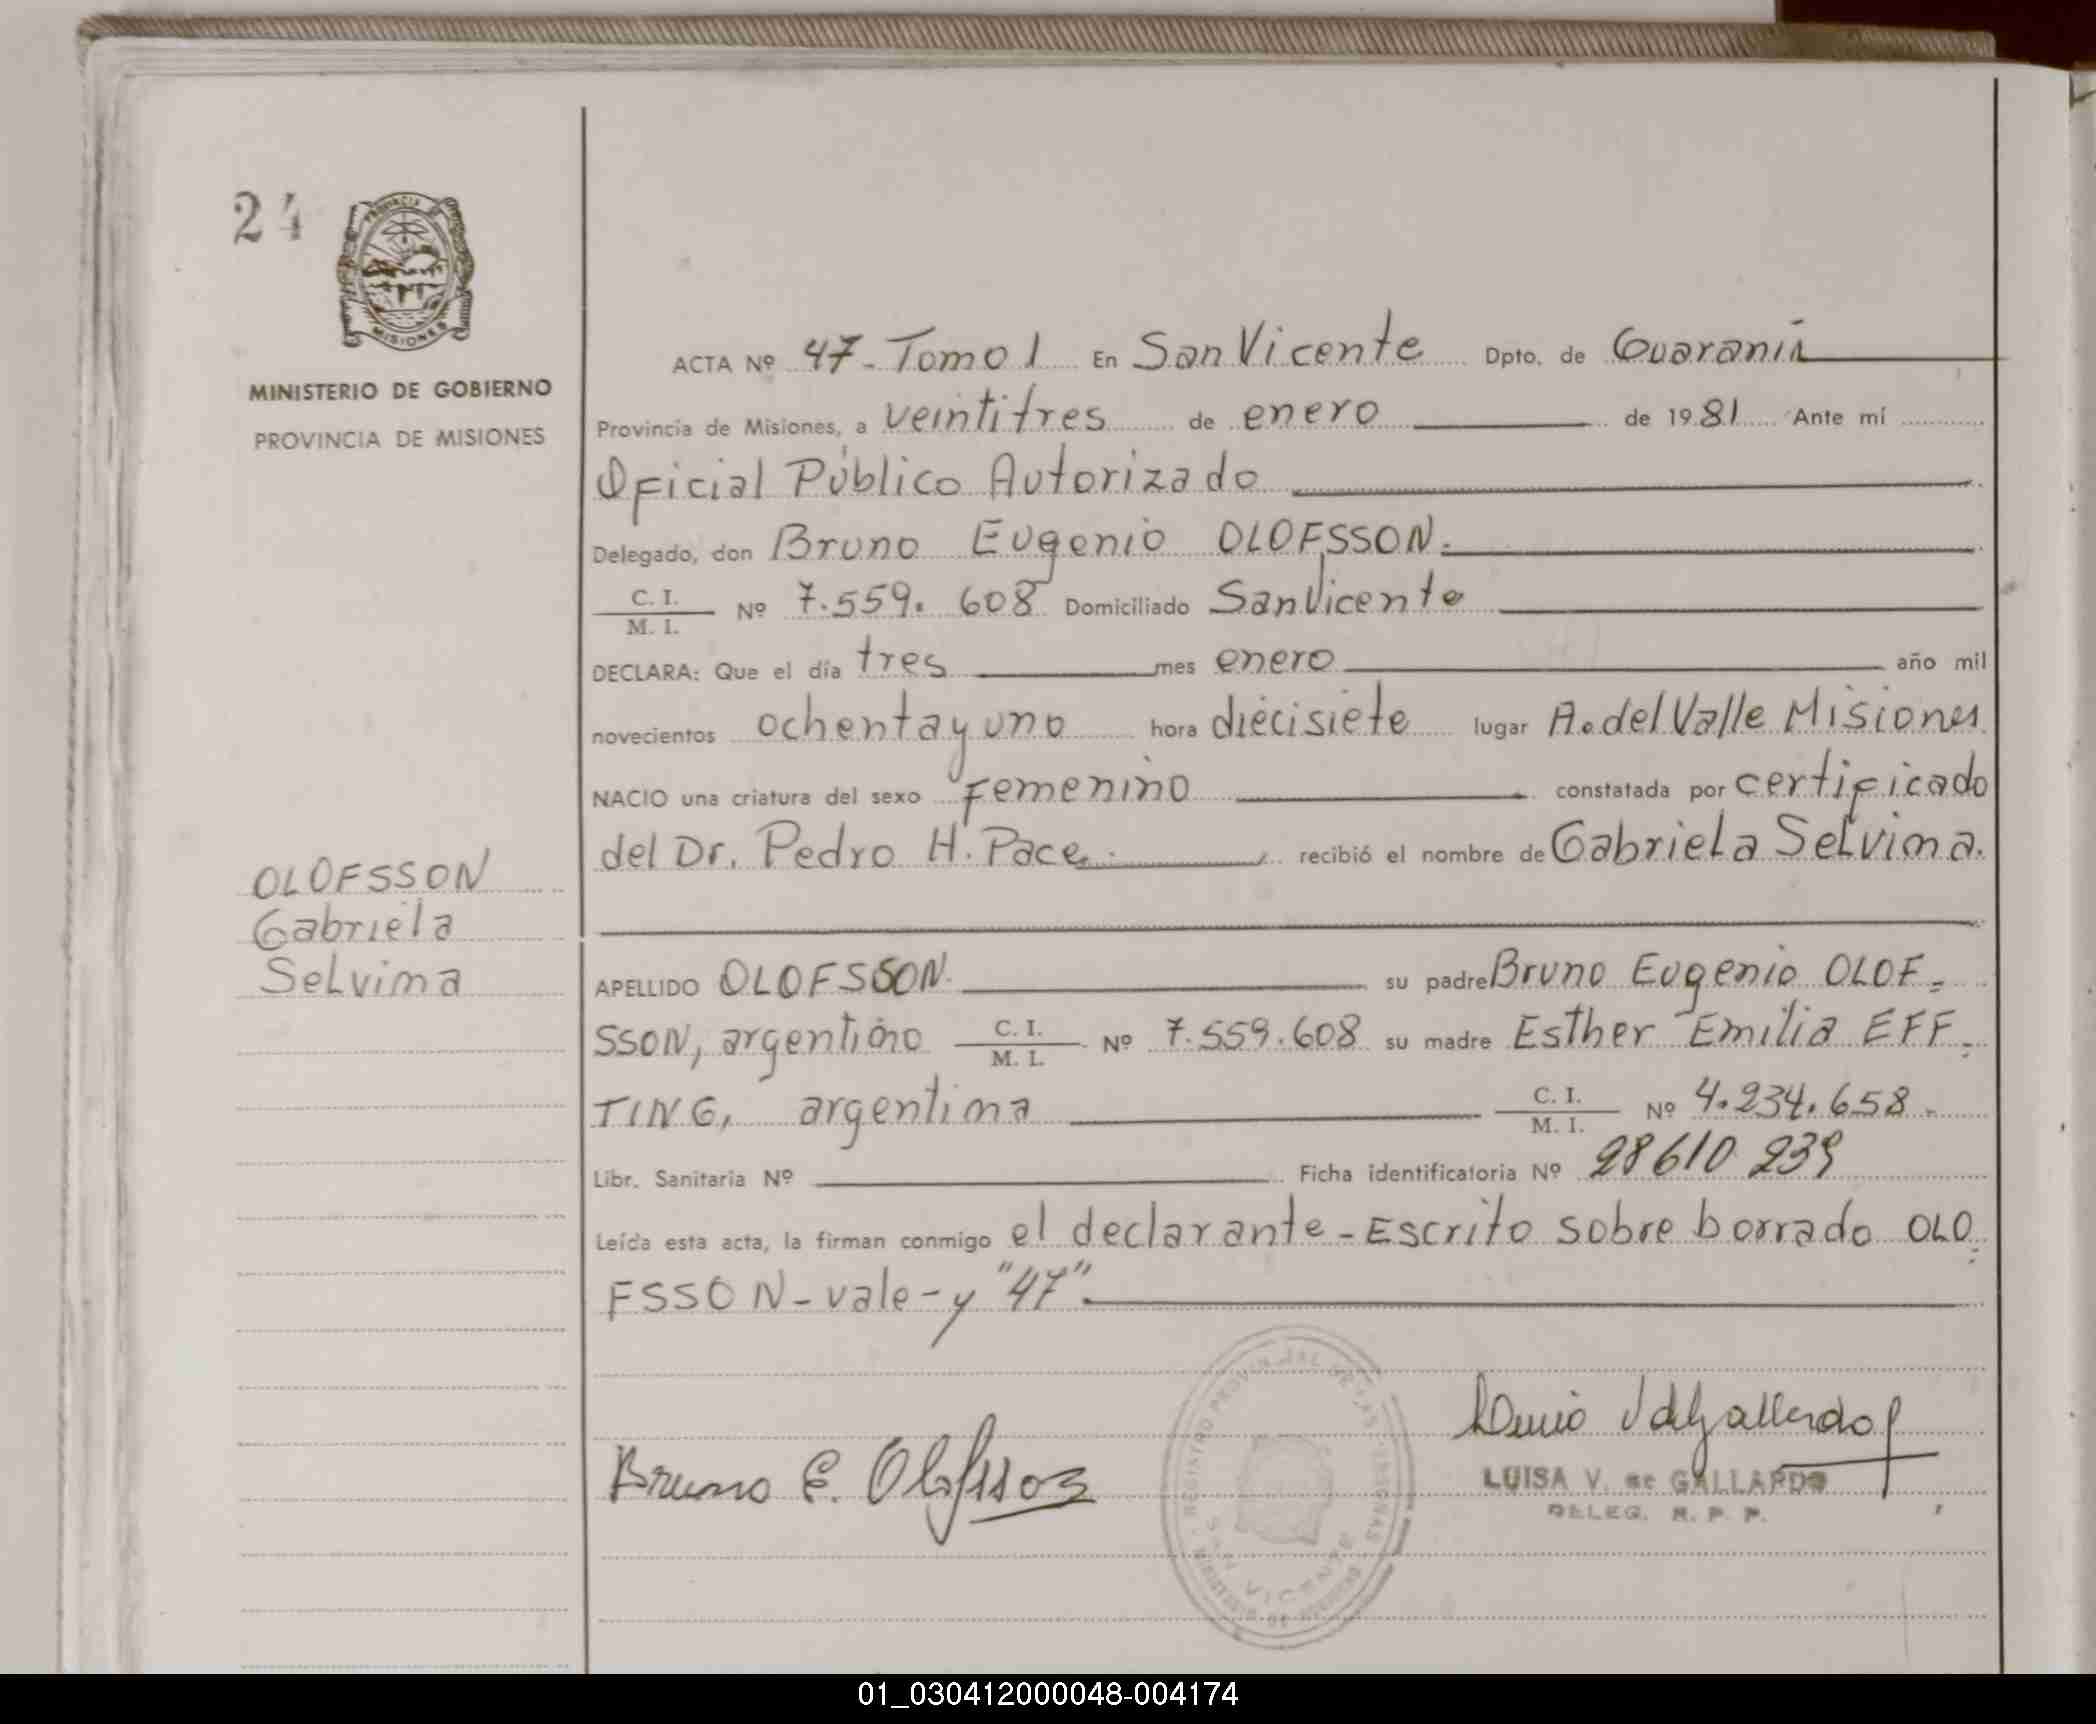 24
PROVINCIA DE
MISIONES
MINISTERIO DE GOBIERNO
PROVINCIA DE MISIONES
OLOFSSON
Gabriela
Selvima
ACTA Nº 47 - Tomo 1 En San Vicente Dpto. de Guaraní
Provincia de Misiones, a veintitres de enero de 1981 Ante mí
Oficial Público Autorizado
Delegado, don Bruno Eugenio OLOFSSON.
C. I.
M. I. Nº 7.559.608 Domiciliado San Vicente
DECLARA: Que el día tres mes enero año mil
novecientos ochenta y uno hora diecisiete lugar A. del Valle Misiones
NACIO una criatura del sexo Femenino constatada por certificado
del Dr. Pedro H. Pace. recibió el nombre de Gabriela Selvima.
APELLIDO OLOFSSON. su padre Bruno Eugenio OLOF=
SSON, argentino C. I. M. I. Nº 7.559.608 su madre Esther Emilia EFF=
TING, argentina C. I. M. I. Nº 4.234.658.
Libr. Sanitaria Nº Ficha identificatoria Nº 28610239
Leída esta acta, la firman conmigo el declarante - Escrito sobre borrado OLO=
FSSON - vale - y "47".
Bruno E. Olofsson
REGISTRO PROVINCIAL DE LAS PERSONAS
SAN VICENTE
LUISA V. de GALLARDO
DELEG. R. P. P.
01_030412000048-004174